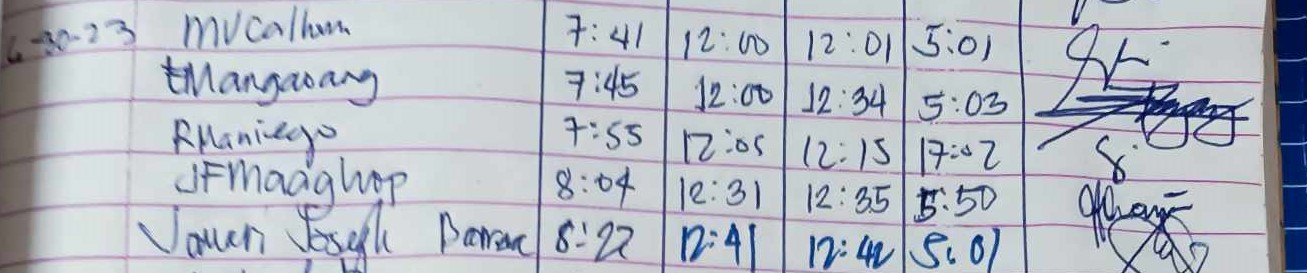 6-30-23 MVCalhum 7:41 12:00 12:01 5:01
tMangaoang 7:45 12:00 12:34 5:03
RManiego 7:55 12:05 12:15 17:02
JFMaaghop 8:04 12:31 12:35 5:50
Joseph 8:22 12:41 12:42 5:01